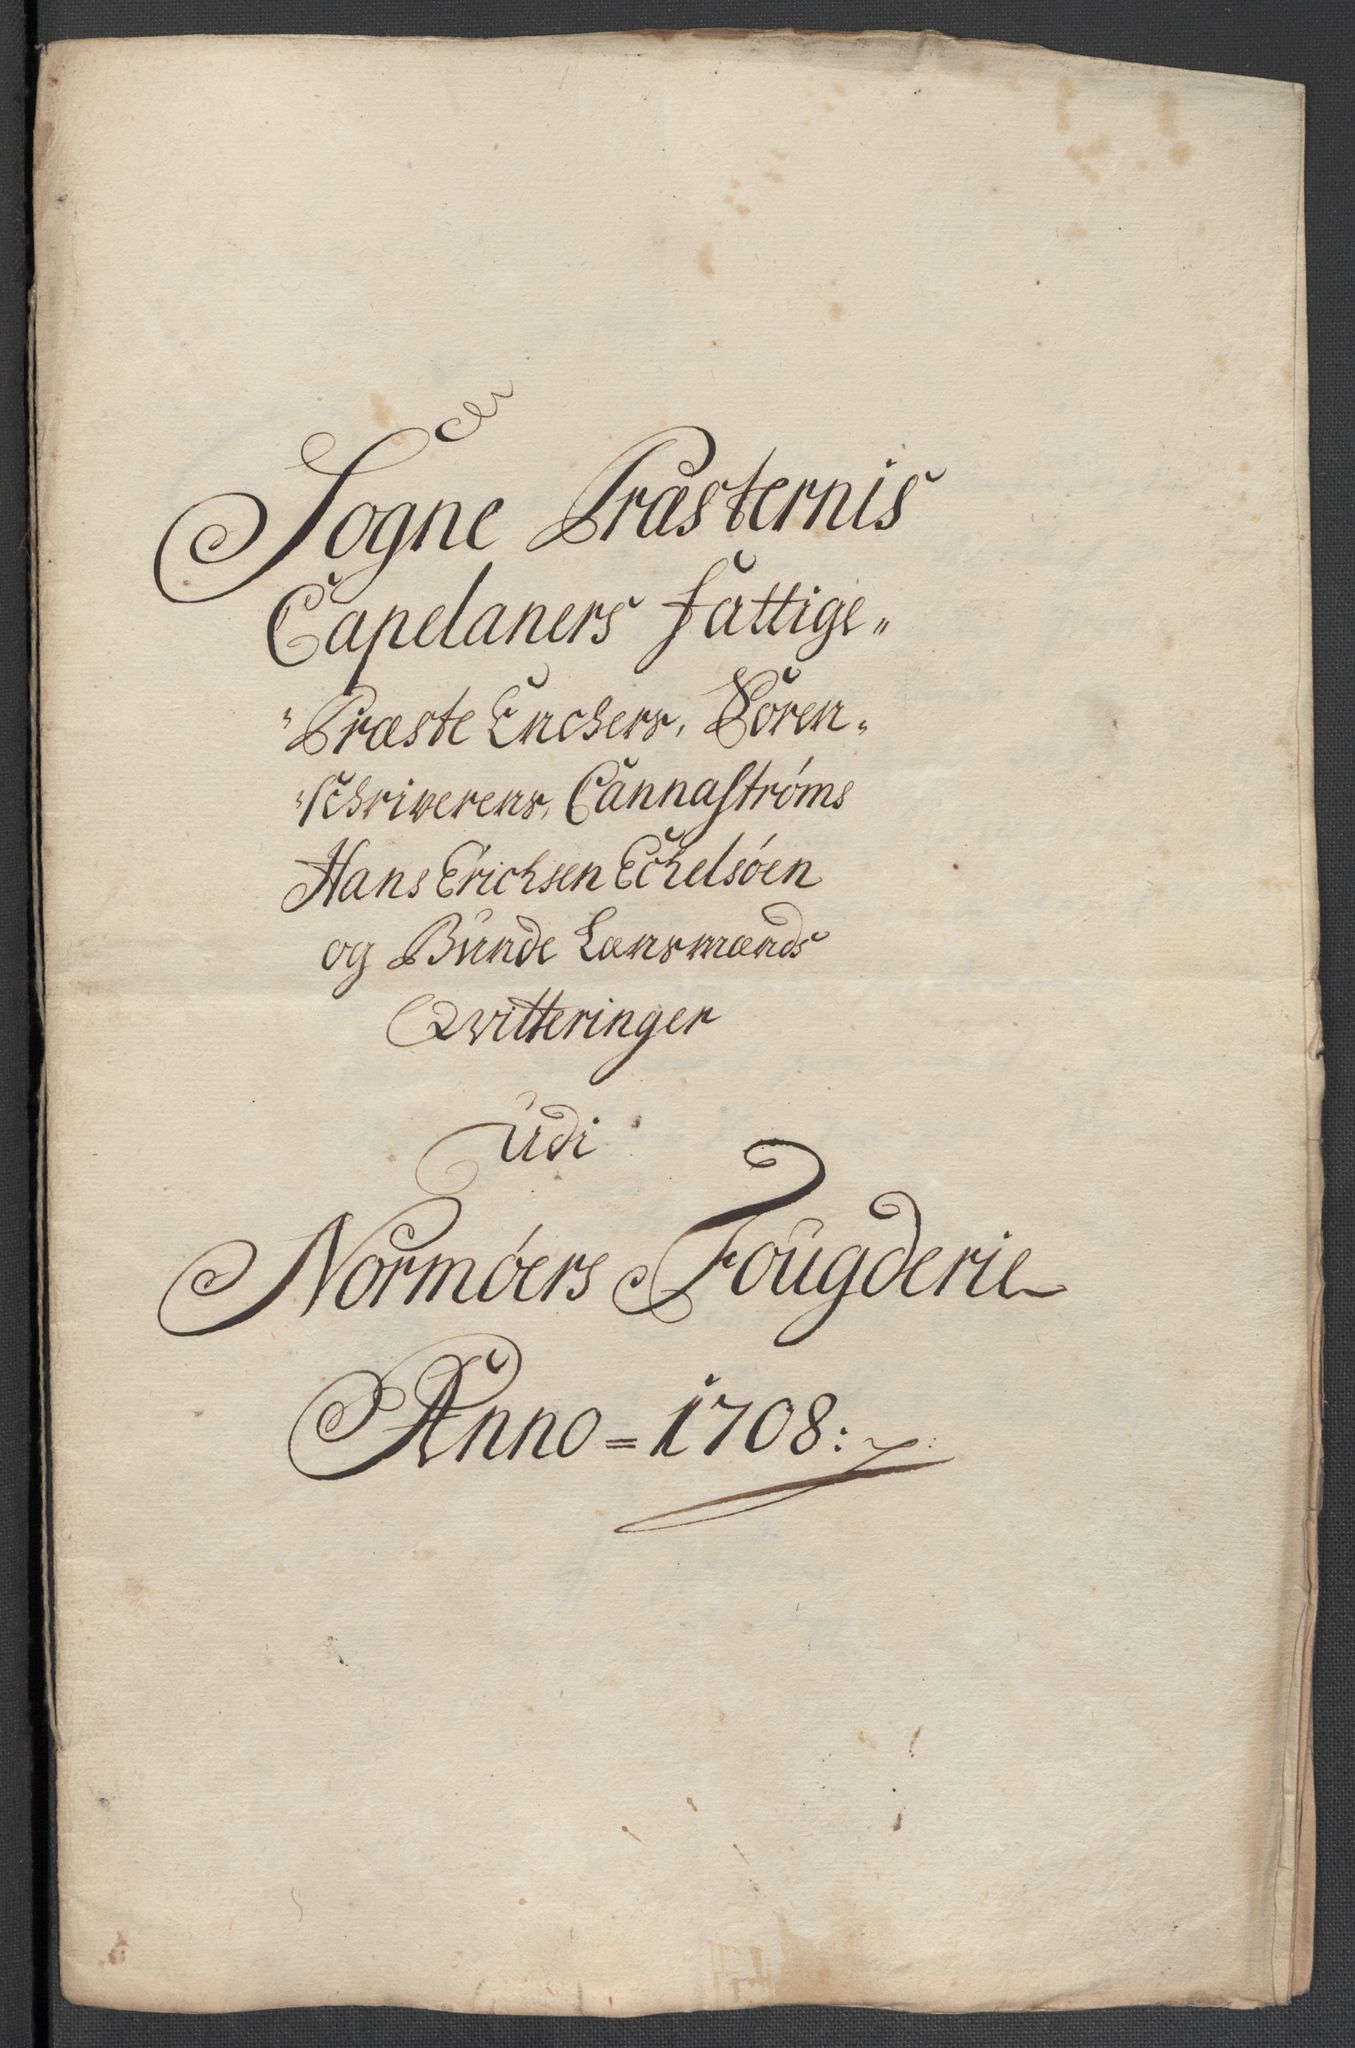 Sogne Præsternis
Capelaners fattige„
„Præste Enchers, Sören„
„schriverens, Cannaströms
Hans Erichsen Echelsöen
og Bunde Lænsmænds
Qvitteringer
udi
Normöers Fougderie
Anno = 1708: